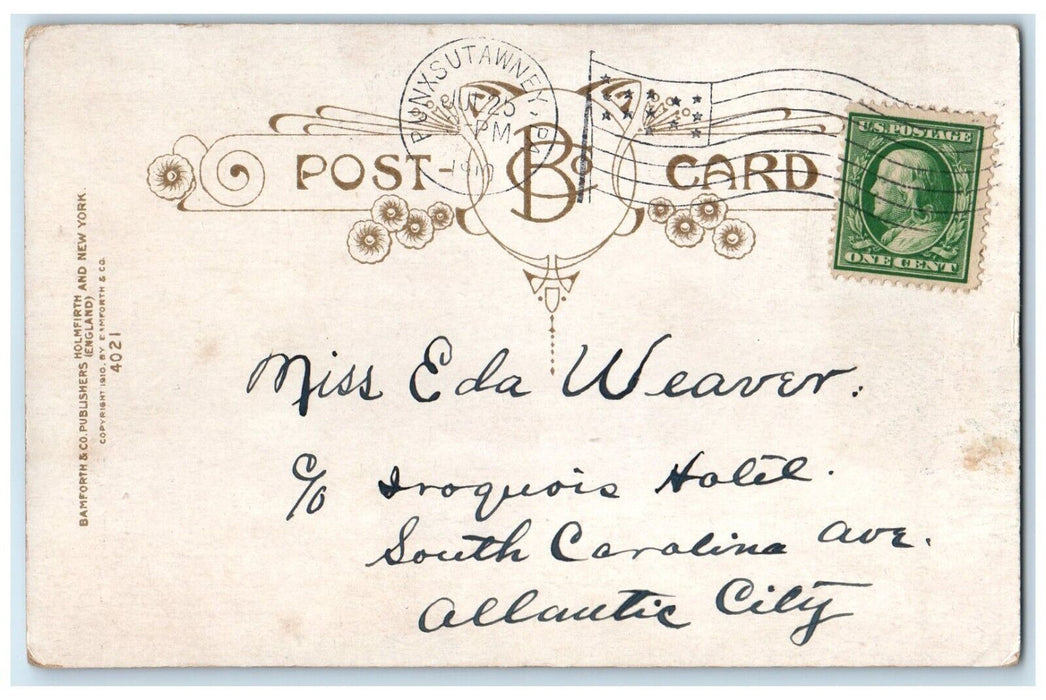 PUNXSUTAWNEY, PA.
JUL 25
PM
1910
POST CARD
B Co
U.S. POSTAGE
ONE CENT
BAMFORTH & CO. PUBLISHERS HOLMFIRTH AND NEW YORK.
(ENGLAND)
COPYRIGHT 1910, BY BAMFORTH & CO.
4021
Miss Eda Weaver.
c/o Iroquois Hotel.
South Carolina Ave.
Atlantic City